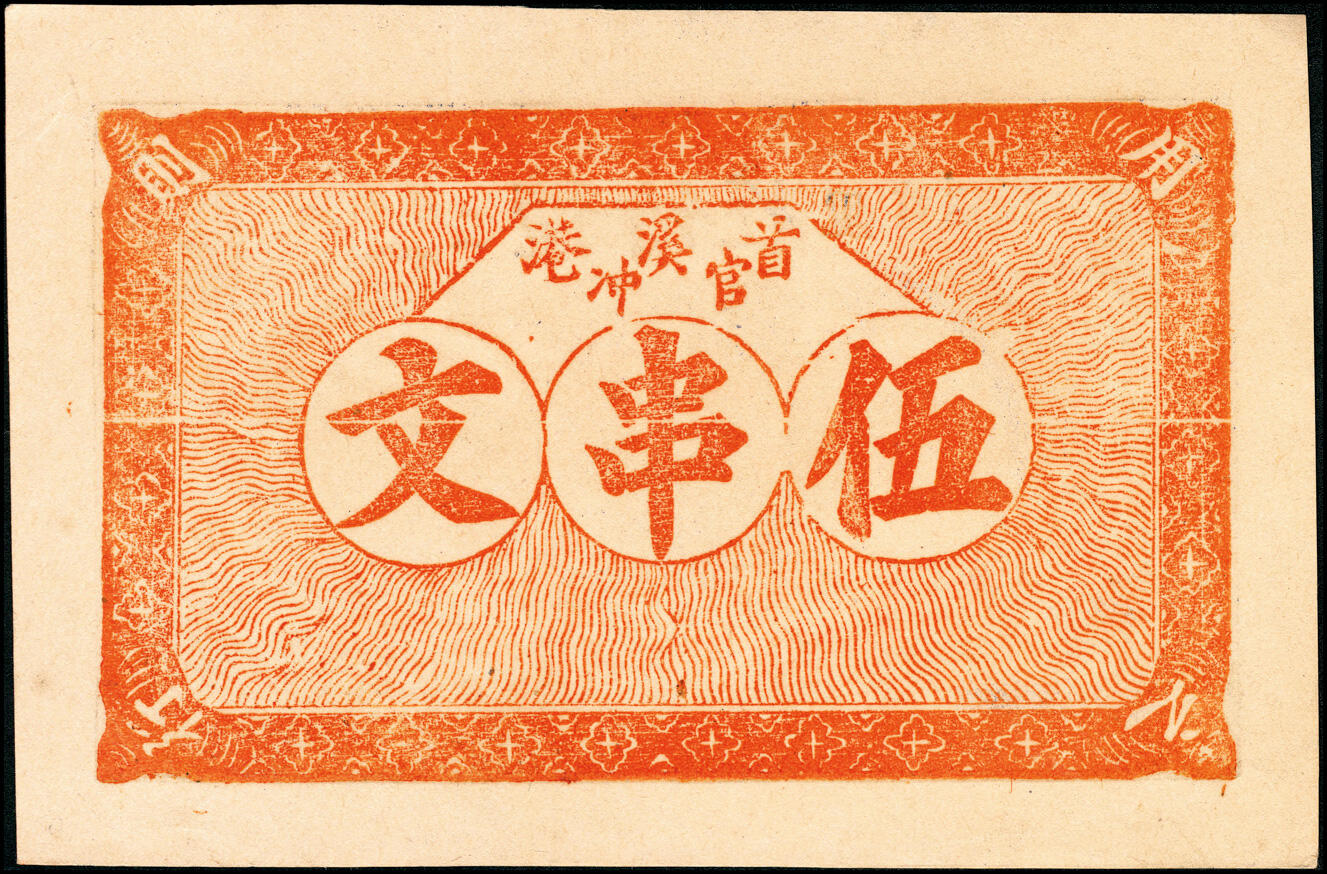 首官溪冲港
伍串文
用之
則行